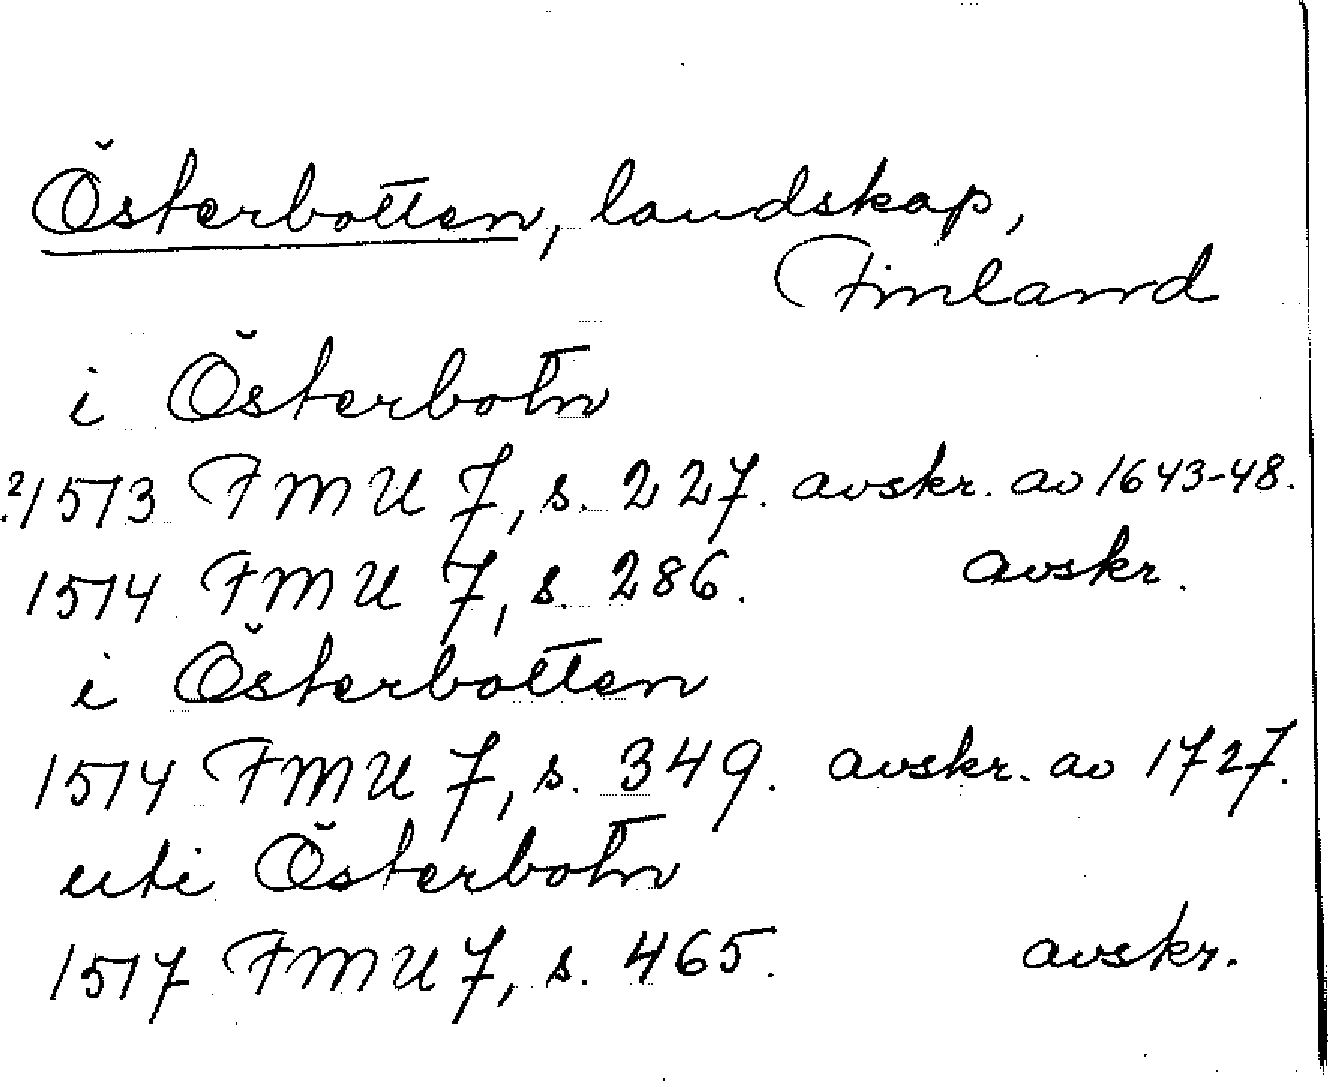 Österbotten, landskap,
Finland
i Österbotn
?1513 FMU 7, s. 227. avskr. av 1643-48.
1514 FMU 7, s. 286. avskr.
i Österbotten
1514 FMU 7, s. 349. avskr. av 1727.
uti Österbotn
1517 FMU 7, s. 465. avskr.